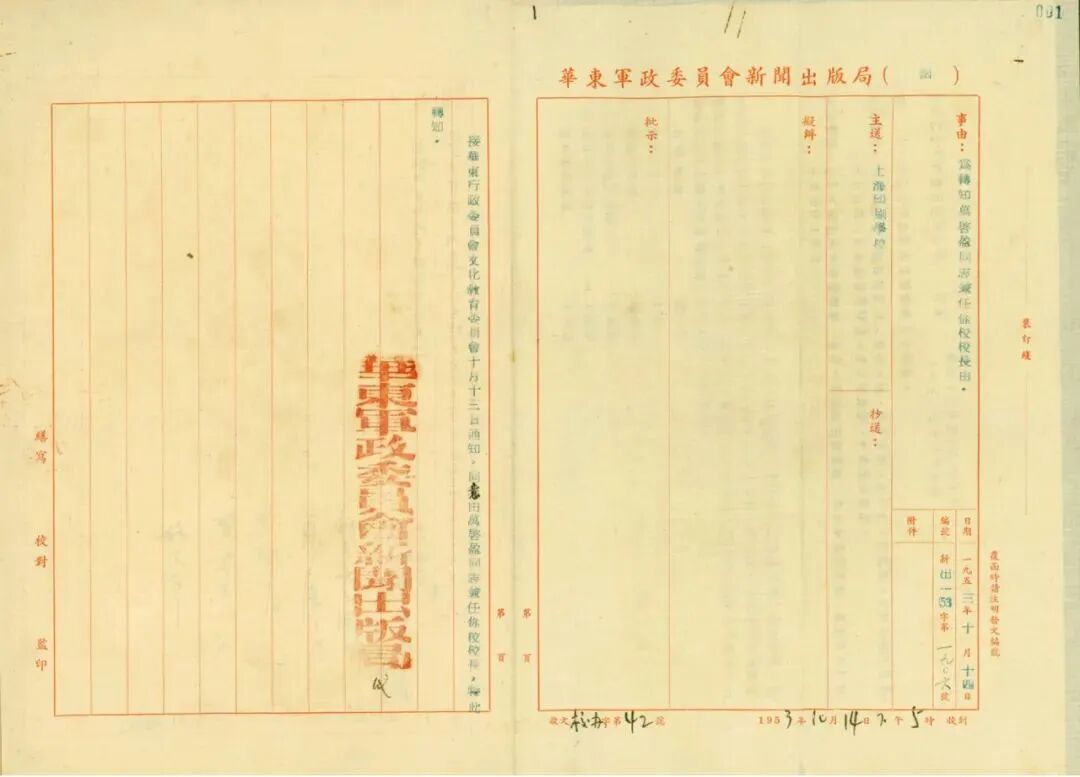 001
華東軍政委員會新聞出版局(函)
事由：為轉知萬啓盈同志兼任你校校長由。
日期 一九五三年十月十四日
編號 新(出)一53字第一九〇六號
附件
主送：上海印刷學校
抄送：
擬辦：
批示：
裝訂綫
覆函時請註明發文編號
收文校办字第42號
1953年10月14日下午5時收到
第 頁
第 頁
接華東行政委員會文化教育委員會十月十三日通知，同意由萬啓盈同志兼任你校校長，特此
轉知。
華東軍政委員會新聞出版局
繕寫 校對 監印